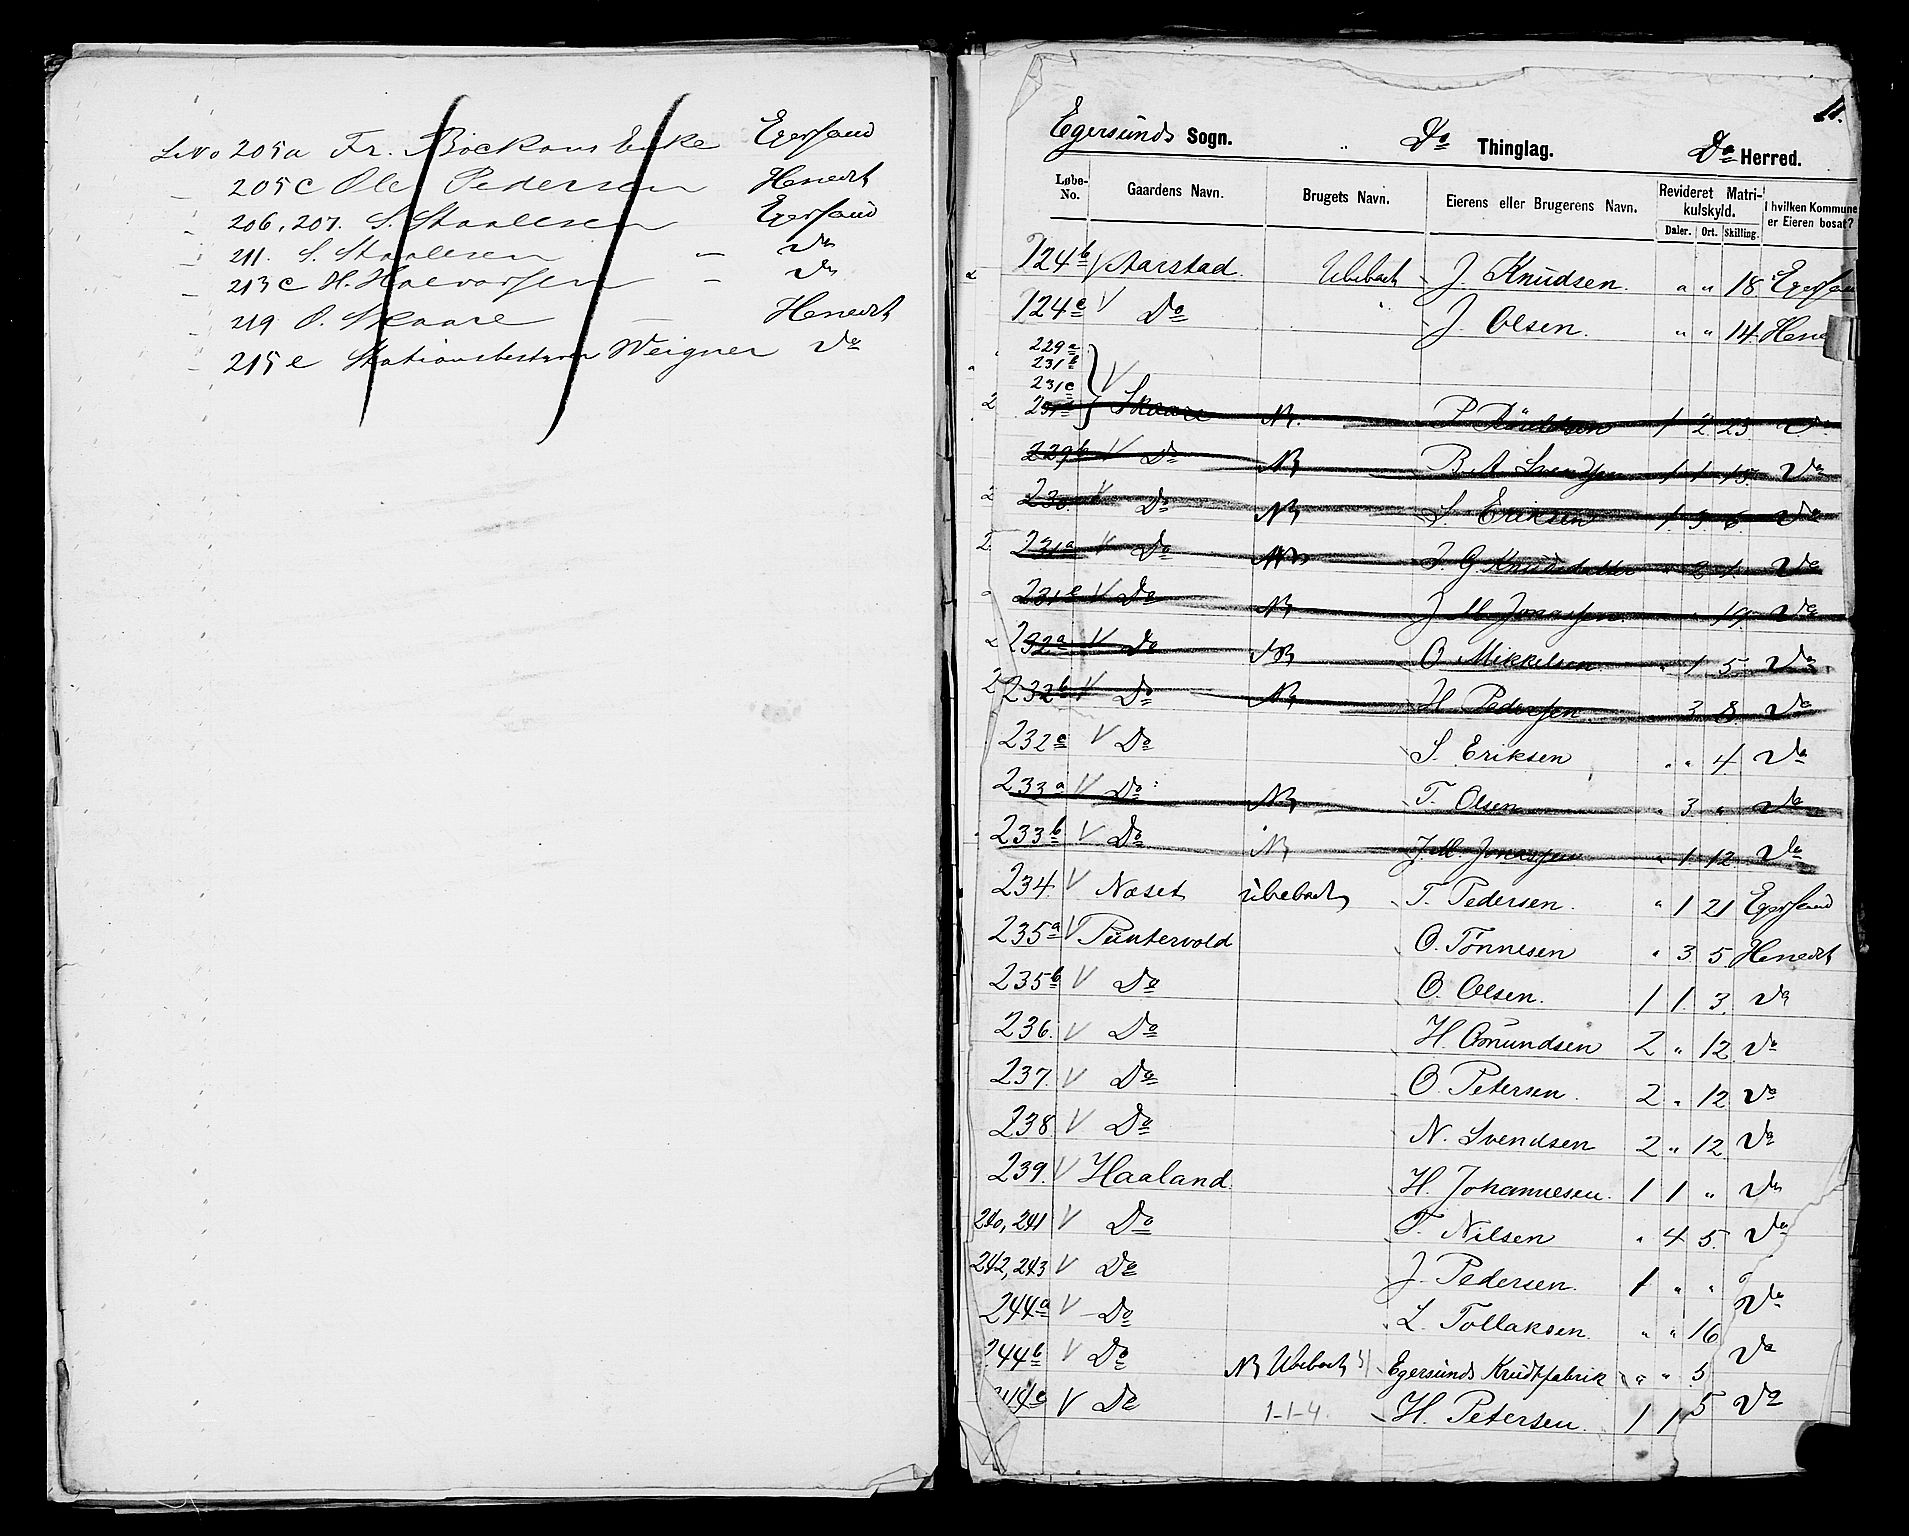 LNo 205a Fr. Böckmans Enke Egersund
205c Ole Pedersen Heredt
206, 207. S. Staalesen Egersund
211. S. Staalesen " Do
213c H. Halvorsen " Do
219 O. Skaare — Heredt
215e Stationsbestyrer Weigner Do
11.
Egersunds Sogn. Do Thinglag. Do Herred.
Løbe-No. Gaardens Navn. Brugets Navn. Eierens eller Brugerens Navn. Revideret Matrikulskyld. Daler. Ort. Skilling. I hvilken Kommune er Eieren bosat?
124b V Aarstad. Ubebodt J. Knudsen. " " 18 Egersund
124c V Do J. Olsen. " " 14 Hered
229a
231b
231c V
231d Skaare N. P. Poulsen 1 2 23 Do
229b V Do N B. A. Svendsen 1 1 15 Do
230. V Do N S. Eriksen 1 3 6 Do
231a V Do N J. G. Knudsdatter " 2 1 Do
231e V Do N J. M. Jonassen " " 19 Do
232a V Do N O. Mikkelsen " 1 5 Do
232b V Do N H. Pedersen. " 3 8 Do
232c V Do S. Eriksen " " 4 Do
233a V Do N T. Olsen " 3 " Do
233b V Do N J. M. Jonassen " 1 12 Do
234. V Naset Ubebodt T. Pedersen. " 1 21 Egersund
235a V Puntervold O. Tönnesen " 3 5 Heredt
235b V Do O. Olsen. 1 1 3 Do
236. V Do H. Omundsen 2 " 12 Do
237. V Do O. Petersen. 2 " 12 Do
238 V Do N. Svendsen 2 " 12 Do
239. V Haaland. H. Johannesen. 1 1 " Do
240, 241 V Do T. Nilsen " 4 5. Do
242, 243 V Do J. Pedersen. 1 " " Do
244a V Do L. Tollaksen. " " 16 Do
244b V Do N Ubebodt Egersunds Krudtfabrik " " 5 Do
244c V Do 1-1-4. H. Petersen. 1 1 5 Do